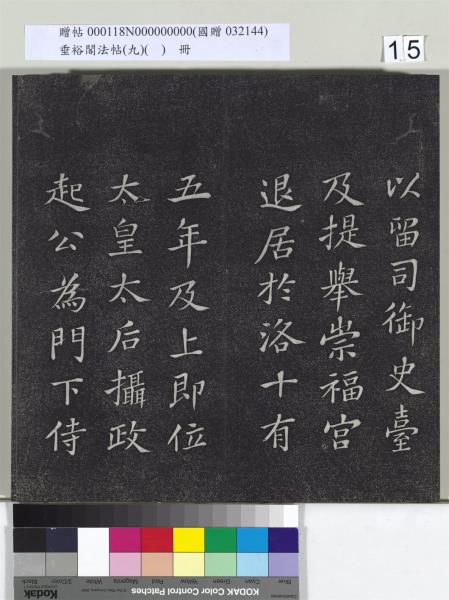 贈帖 000118N000000000(國贈 032144)
垂裕閣法帖(九)( ) 冊
15
以留司御史臺
及提舉崇福宮
退居於洛十有
五年及上即位
太皇太后攝政
起公為門下侍
Blue
Cyan
Green
Yellow
Red
Magenta
White
3/Color
Black
Kodak
KODAK Color Control Patches